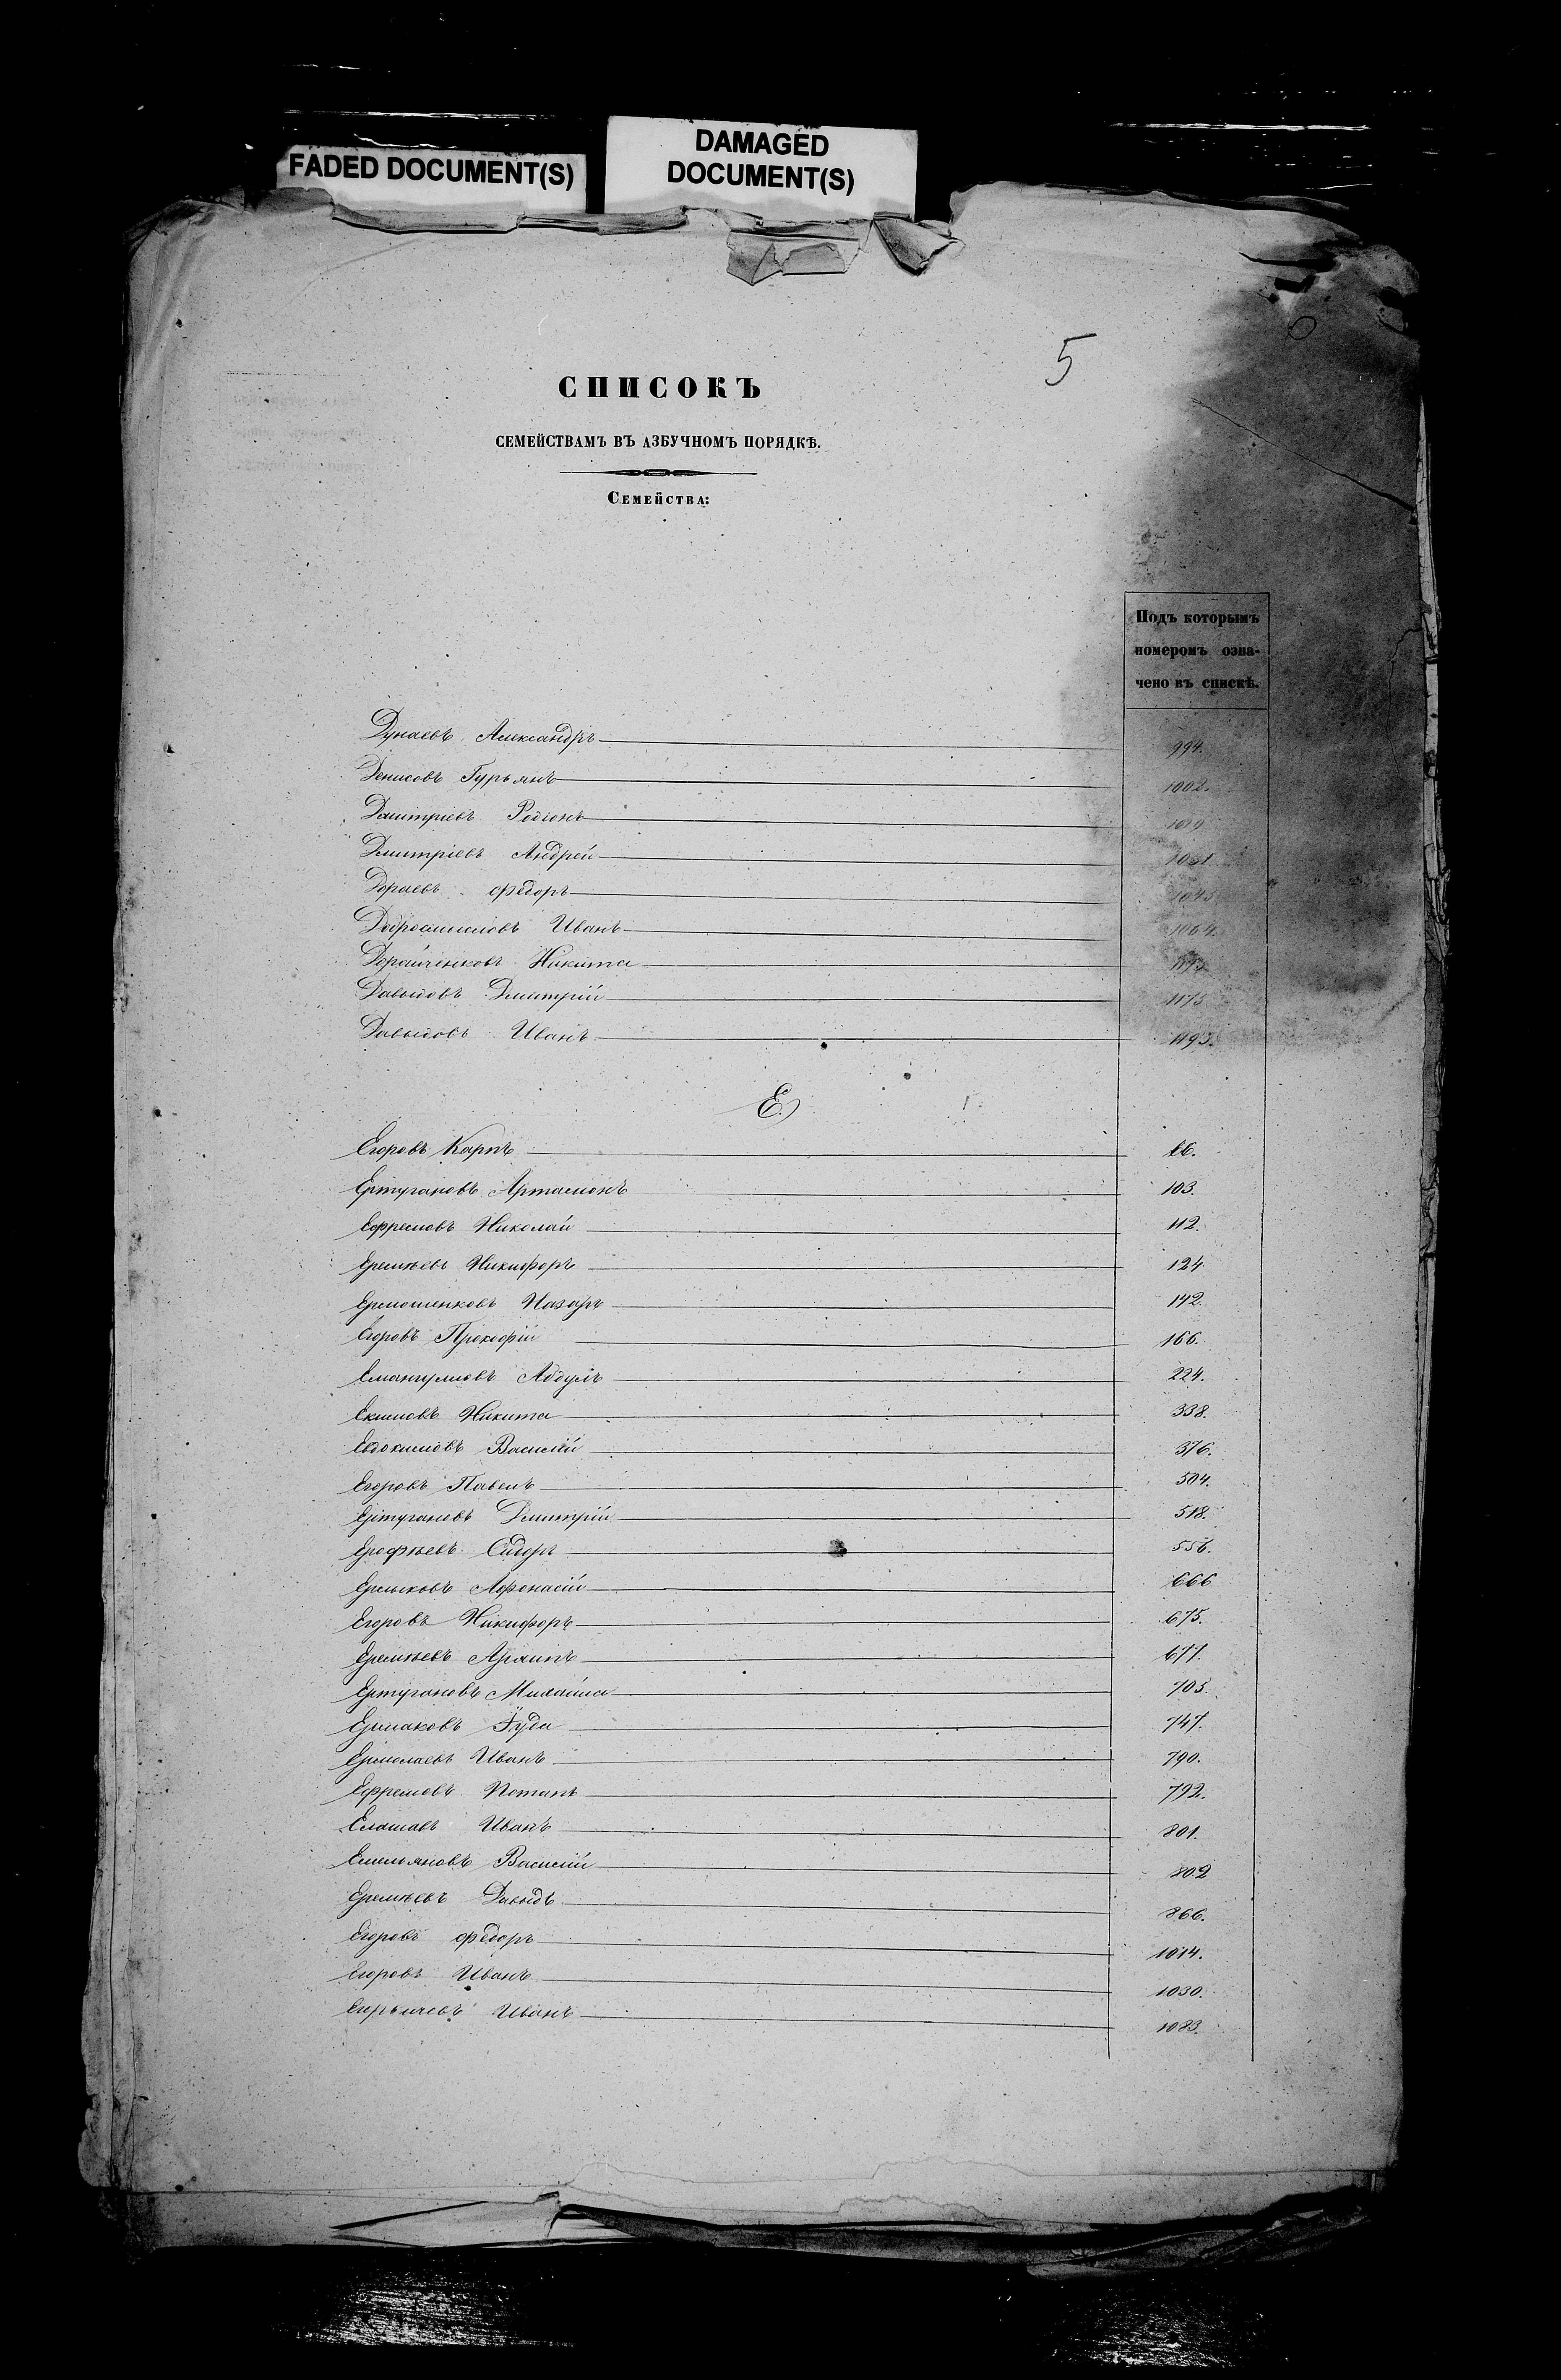 FADED DOCUMENT(S)
DAMAGED
DOCUMENT(S)
5
СПИСОКЪ
СЕМЕЙСТВАМЪ ВЪ АЗБУЧНОМЪ ПОРЯДКѢ.
СЕМЕЙСТВА:
Подъ которымъ
номеромъ озна-
чено въ спискѣ.
Дунаевъ Александръ 994.
Денисовъ Гурьянъ 1002.
Дмитріевъ Родіонъ
Дмитріевъ Андрей
Ѳедоръ
Иванъ 1064.
Никита
Давыдовъ Дмитрій 1175
Давыдовъ Иванъ 1195.
Е.
Егоровъ Карпъ
Ертугановъ Артамонъ 103.
Ефремовъ Николай 112.
Еремѣевъ Никифоръ 124.
Ермошенковъ Назаръ 142.
Егоровъ Прокофій 166.
Емангуловъ Абдулъ 224.
Екимовъ Никита 338.
Евдокимовъ Василій 376.
Егоровъ Павелъ 504.
Ертугановъ Дмитрій 518.
Ерофѣевъ Сидоръ 556.
Афонасій 666
Егоровъ Никифоръ 675.
Еремѣевъ 677.
Ертугановъ Михайла 705.
Ермаковъ Іуда 747.
Ермолаевъ Иванъ 790.
Ефремовъ Потапъ 792.
Иванъ 801.
Емельяновъ Василій 802
Еремѣевъ Давыдъ 866.
Егоровъ Федоръ 1014.
Егоровъ Иванъ 1030.
Иванъ 1083.